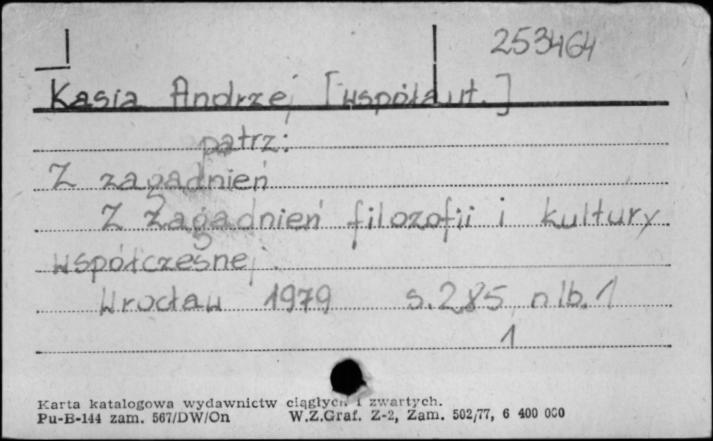 253464
Kasia Andrzej [współaut.]
patrz:
Z zagadnień
Z zagadnień filozofii i kultury
współczesnej.
Wrocław 1979 s.285, nlb. 1
1
Karta katalogowa wydawnictw ciągłych i zwartych.
Pu-B-144 zam. 567/DW/On W.Z.Graf. Z-2, Zam. 502/77, 6 400 000